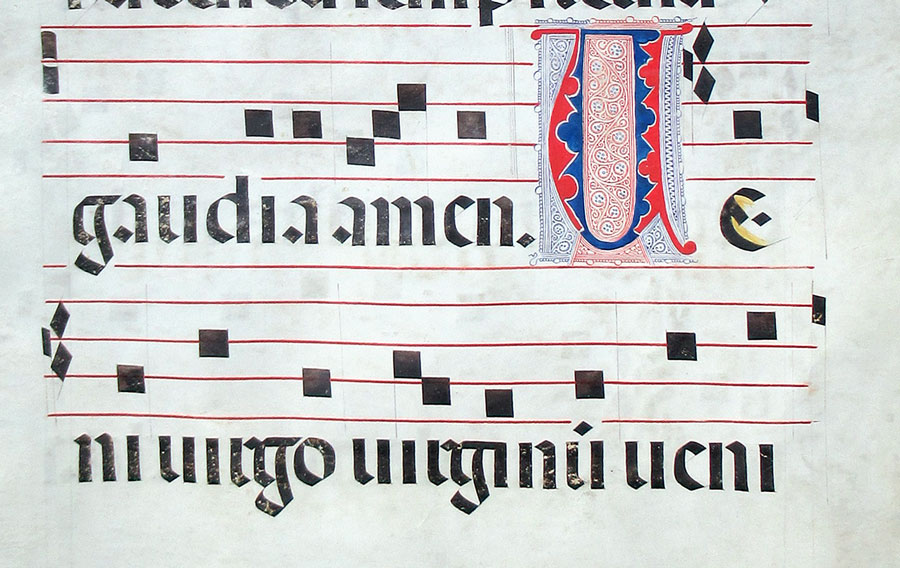 gaudia amen. U e
ni uirgo uirginū ueni